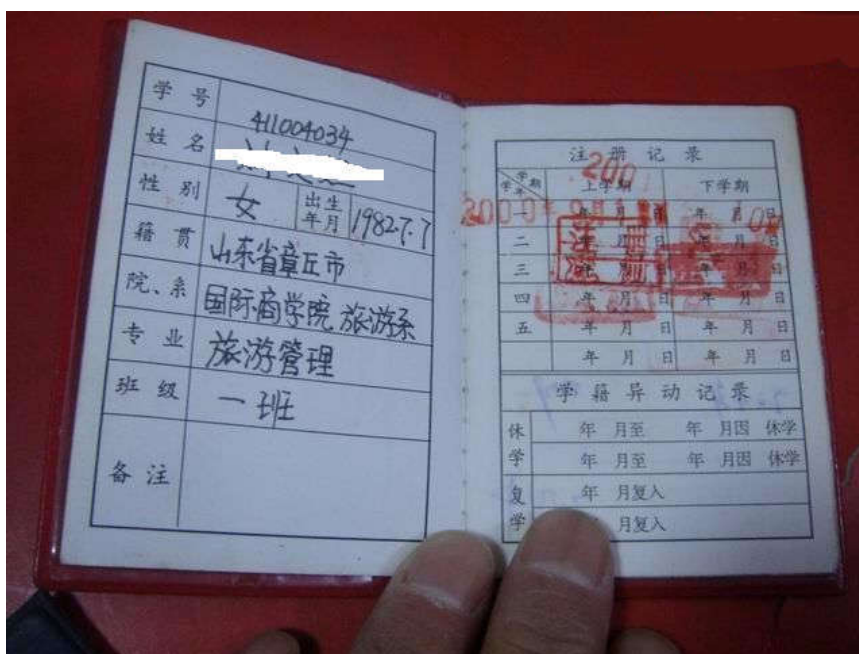 学号 411004034
姓名
性别 女 出生年月 1982.7.7
籍贯 山东省章丘市
院、系 国际商学院 旅游系
专业 旅游管理
班级 一班
备注
注册记录
学期 学年 上学期 下学期
一 年 月 日 年 月 日
二 年 月 日 年 月 日
三 年 月 日 年 月 日
四 年 月 日 年 月 日
五 年 月 日 年 月 日
年 月 日 年 月 日
学籍异动记录
休学 年 月至 年 月因 休学
年 月至 年 月因 休学
复学 年 月复入
月复入